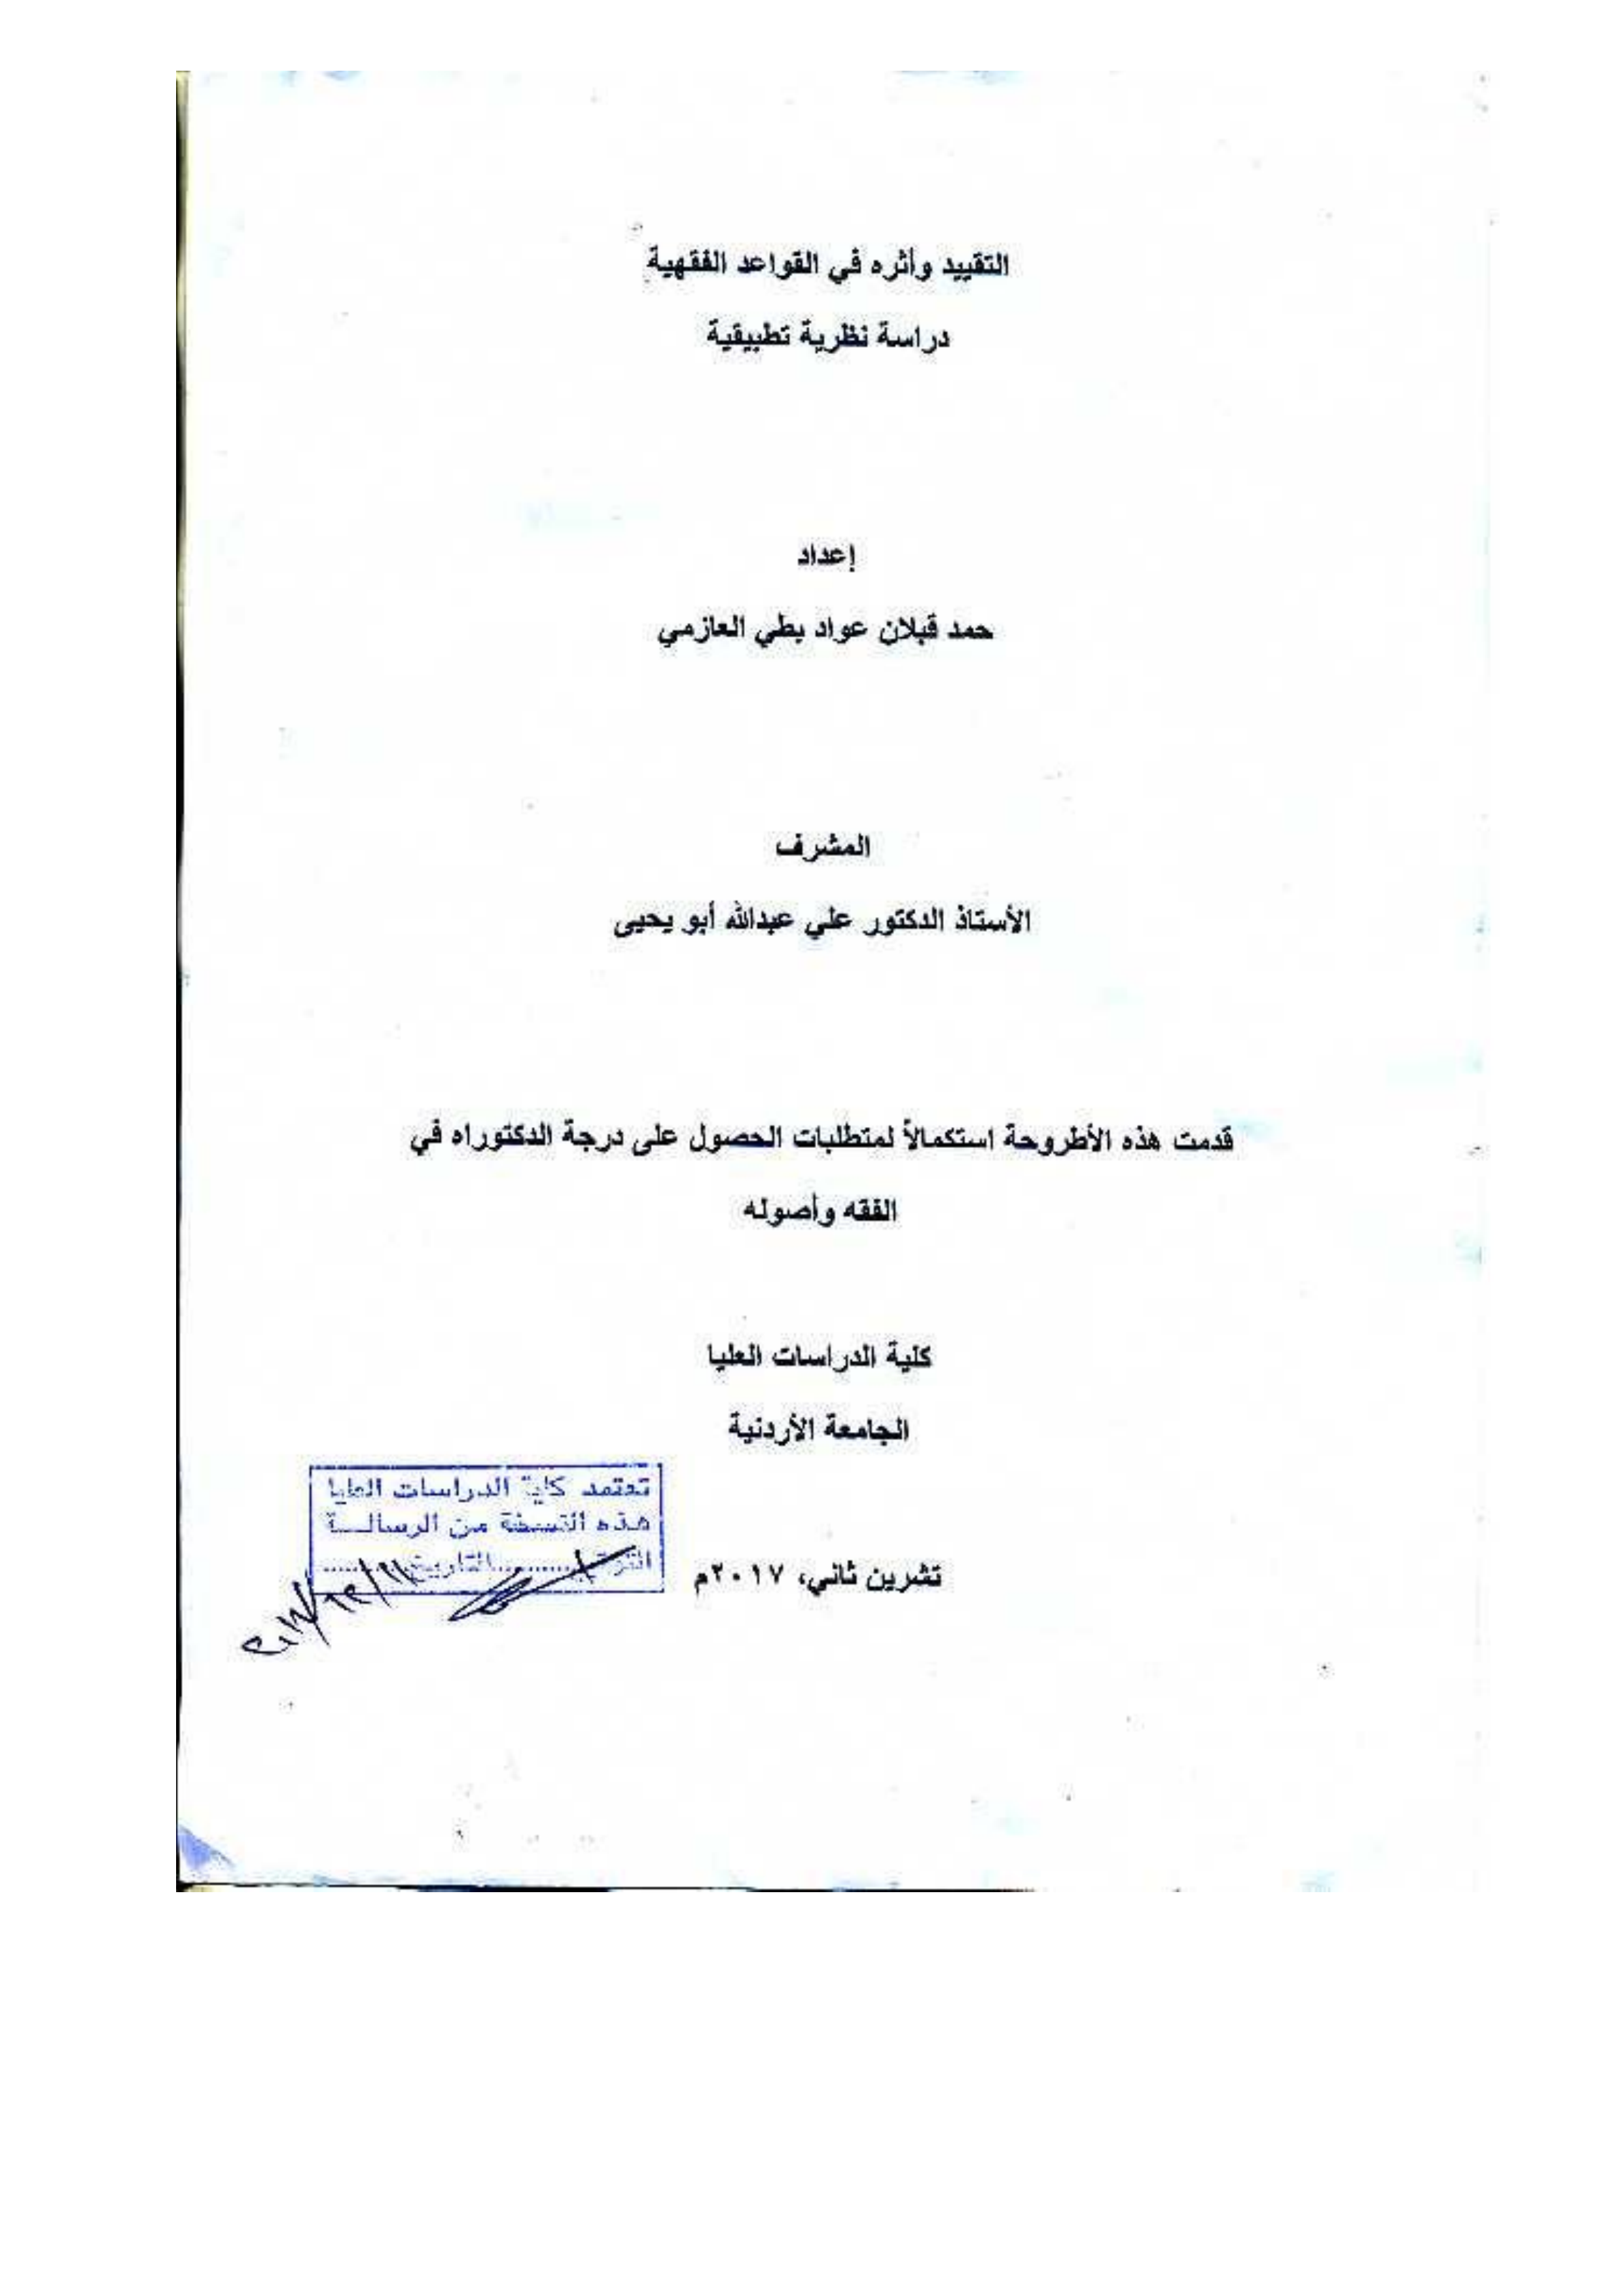 التقييد وأثره في القواعد الفقهية
دراسة نظرية تطبيقية
إعداد
حمد قبلان عواد بطي العازمي
المشرف
الأستاذ الدكتور علي عبدالله أبو يحيى
قدمت هذه الأطروحة استكمالاً لمتطلبات الحصول على درجة الدكتوراه في
الفقه وأصوله
كلية الدراسات العليا
الجامعة الأردنية
تعتمد كلية الدراسات العليا
هذه النسخة من الرسالــة
التوقيع............التاريخ............
تشرين ثاني، ٢٠١٧م